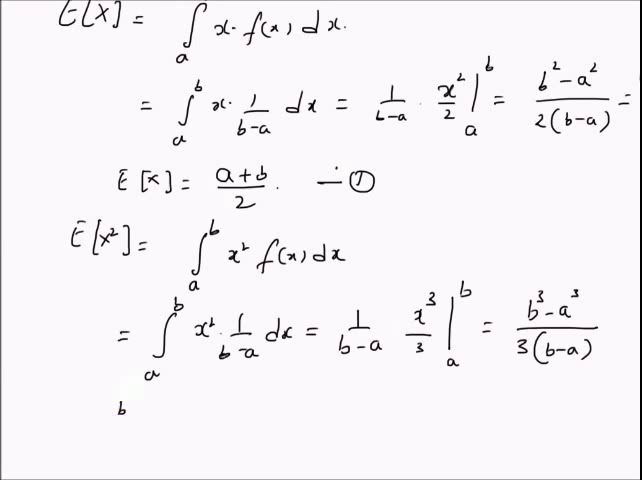 E[X] = ∫ₐ x· f(x) dx.
= ∫ₐᵇ x· 1/(b-a) dx = 1/(b-a) · x²/2 |ₐᵇ = (b²-a²)/(2(b-a)) =
E[X] = (a+b)/2. — ①
E[X²] = ∫ₐᵇ x² f(x) dx
= ∫ₐᵇ x²· 1/(b-a) dx = 1/(b-a) x³/3 |ₐᵇ = (b³-a³)/(3(b-a))
b